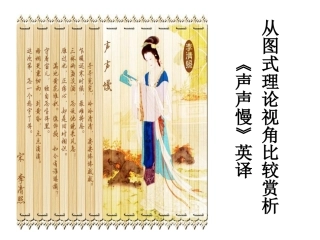 从图式理论视角比较赏析
《声声慢》英译
李清照
声声慢
寻寻觅觅，冷冷清清，凄凄惨惨戚戚
乍暖还寒时候，最难将息
三杯两盏淡酒，怎敌他晚来风急
雁过也，正伤心，却是旧时相识
满地黄花堆积，憔悴损，如今有谁堪摘
守着窗儿，独自怎生得黑
梧桐更兼细雨，到黄昏，点点滴滴
这次第，怎一个愁字了得
宋 李清照